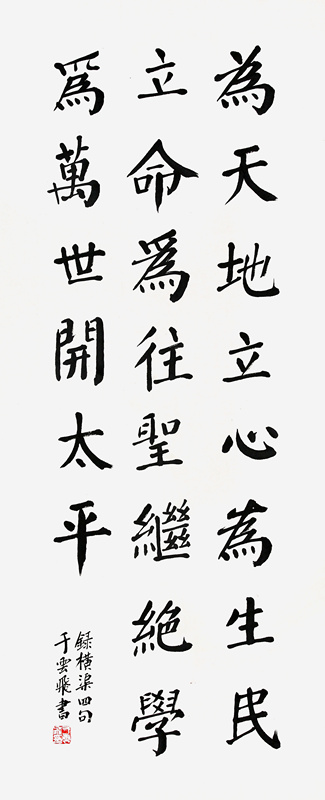 為天地立心為生民
立命爲往聖繼絶學
爲萬世開太平
録橫渠四句
于雲飛書